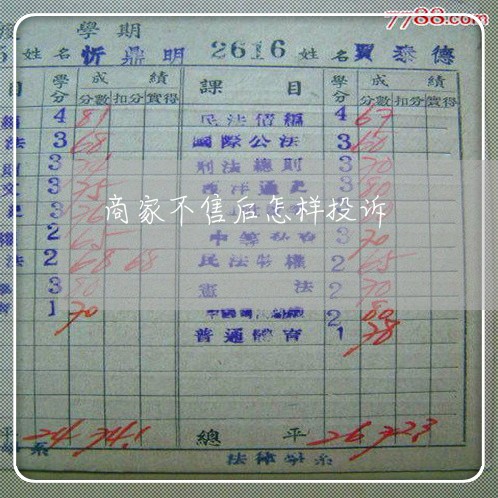 7788.com
度 學期
5 姓名 忻鼎明 2616 姓名 賈泰德
目 學分 成績 課目 學分 成績
分數 扣分 實得 分數 扣分 實得
編 4 81 民法債編 4 67
法 3 68 國際公法 3 60
則 3 刑法總則 3 70
3 75 西洋通史 3 80
史 3
商家不售后怎样投诉
2 65 3 70
法 2 68 68 民法物權 2 65
3 80 憲法 2 70
育 1 70 2 80
普通體育 1 78
平 24 74.1 總平 26 72.3
系 法律學系